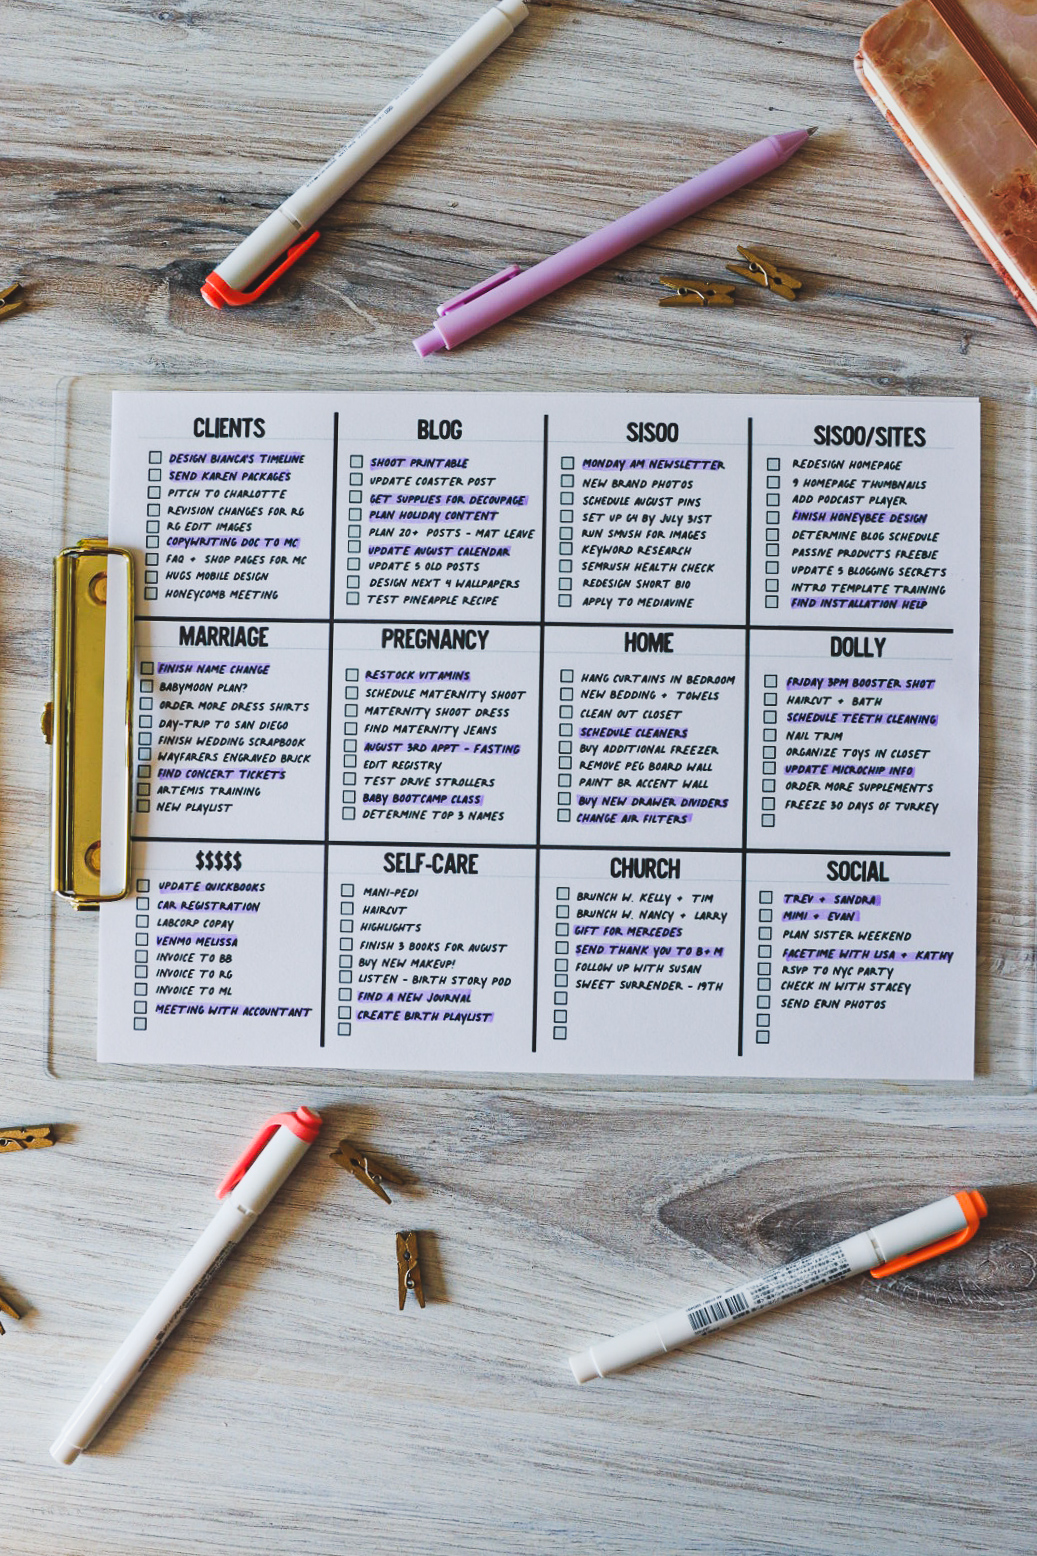 CLIENTS
DESIGN BIANCA'S TIMELINE
SEND KAREN PACKAGES
PITCH TO CHARLOTTE
REVISION CHANGES FOR RG
RG EDIT IMAGES
COPYWRITING DOC TO MC
FAQ + SHOP PAGES FOR MC
HUGS MOBILE DESIGN
HONEYCOMB MEETING
BLOG
SHOOT PRINTABLE
UPDATE COASTER POST
GET SUPPLIES FOR DECOUPAGE
PLAN HOLIDAY CONTENT
PLAN 20+ POSTS - MAT LEAVE
UPDATE AUGUST CALENDAR
UPDATE 5 OLD POSTS
DESIGN NEXT 4 WALLPAPERS
TEST PINEAPPLE RECIPE
SISOO
MONDAY AM NEWSLETTER
NEW BRAND PHOTOS
SCHEDULE AUGUST PINS
SET UP G4 BY JULY 31ST
RUN SMUSH FOR IMAGES
KEYWORD RESEARCH
SEMRUSH HEALTH CHECK
REDESIGN SHORT BIO
APPLY TO MEDIAVINE
SISOO/SITES
REDESIGN HOMEPAGE
9 HOMEPAGE THUMBNAILS
ADD PODCAST PLAYER
FINISH HONEYBEE DESIGN
DETERMINE BLOG SCHEDULE
PASSIVE PRODUCTS FREEBIE
UPDATE 5 BLOGGING SECRETS
INTRO TEMPLATE TRAINING
FIND INSTALLATION HELP
MARRIAGE
FINISH NAME CHANGE
BABYMOON PLAN?
ORDER MORE DRESS SHIRTS
DAY-TRIP TO SAN DIEGO
FINISH WEDDING SCRAPBOOK
WAYFARERS ENGRAVED BRICK
FIND CONCERT TICKETS
ARTEMIS TRAINING
NEW PLAYLIST
PREGNANCY
RESTOCK VITAMINS
SCHEDULE MATERNITY SHOOT
MATERNITY SHOOT DRESS
FIND MATERNITY JEANS
AUGUST 3RD APPT - FASTING
EDIT REGISTRY
TEST DRIVE STROLLERS
BABY BOOTCAMP CLASS
DETERMINE TOP 3 NAMES
HOME
HANG CURTAINS IN BEDROOM
NEW BEDDING + TOWELS
CLEAN OUT CLOSET
SCHEDULE CLEANERS
BUY ADDITIONAL FREEZER
REMOVE PEG BOARD WALL
PAINT BR ACCENT WALL
BUY NEW DRAWER DIVIDERS
CHANGE AIR FILTERS
DOLLY
FRIDAY 3PM BOOSTER SHOT
HAIRCUT + BATH
SCHEDULE TEETH CLEANING
NAIL TRIM
ORGANIZE TOYS IN CLOSET
UPDATE MICROCHIP INFO
ORDER MORE SUPPLEMENTS
FREEZE 30 DAYS OF TURKEY
$$$$$
UPDATE QUICKBOOKS
CAR REGISTRATION
LABCORP COPAY
VENMO MELISSA
INVOICE TO BB
INVOICE TO RG
INVOICE TO ML
MEETING WITH ACCOUNTANT
SELF-CARE
MANI-PEDI
HAIRCUT
HIGHLIGHTS
FINISH 3 BOOKS FOR AUGUST
BUY NEW MAKEUP!
LISTEN - BIRTH STORY POD
FIND A NEW JOURNAL
CREATE BIRTH PLAYLIST
CHURCH
BRUNCH W. KELLY + TIM
BRUNCH W. NANCY + LARRY
GIFT FOR MERCEDES
SEND THANK YOU TO B+M
FOLLOW UP WITH SUSAN
SWEET SURRENDER - 19TH
SOCIAL
TREV + SANDRA
MIMI + EVAN
PLAN SISTER WEEKEND
FACETIME WITH LISA + KATHY
RSVP TO NYC PARTY
CHECK IN WITH STACEY
SEND ERIN PHOTOS